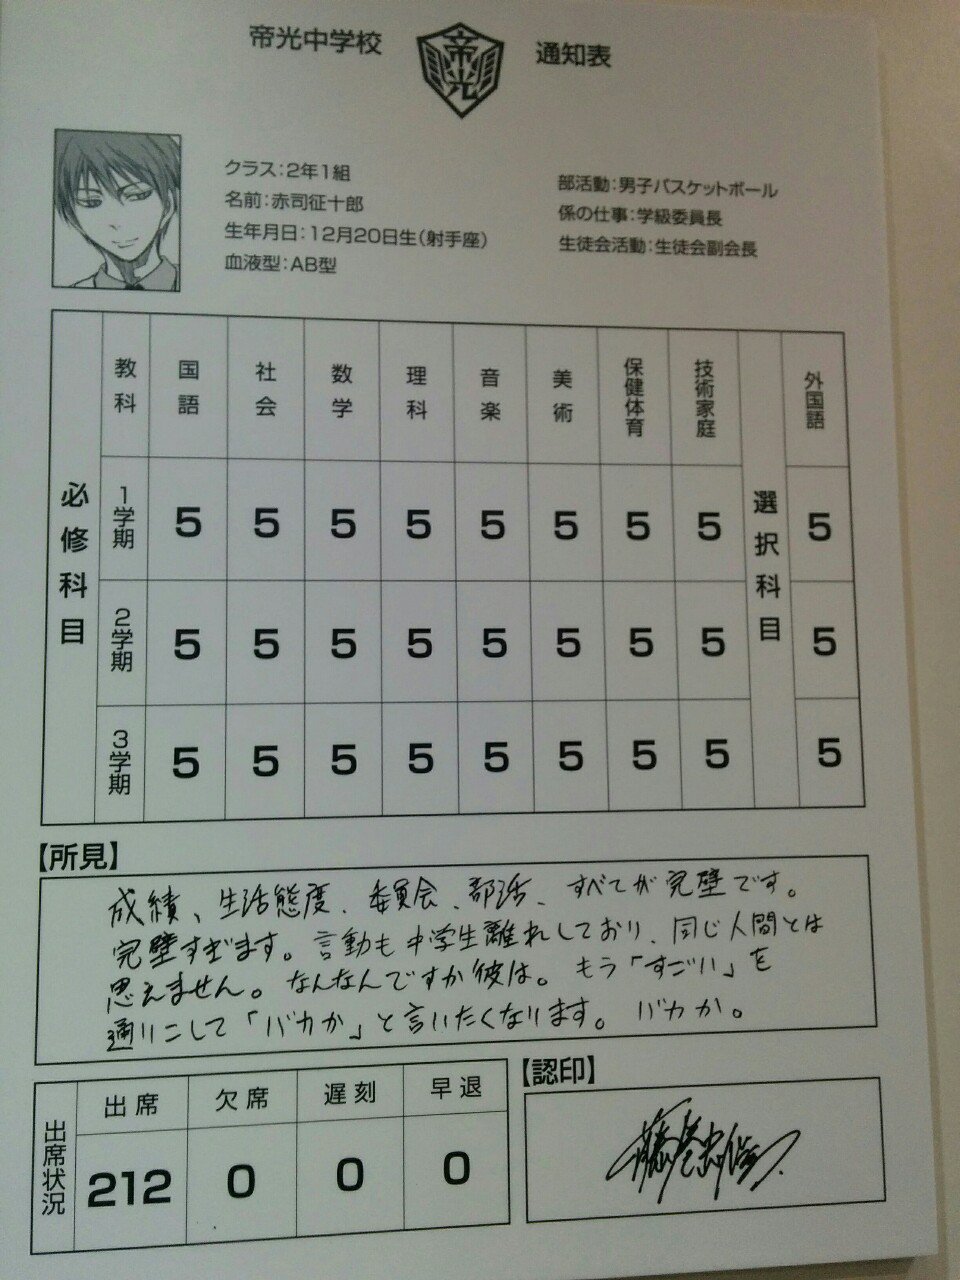 帝光中学校 帝光 通知表
クラス:2年1組
名前:赤司征十郎
生年月日:12月20日生(射手座)
血液型:AB型
部活動:男子バスケットボール
係の仕事:学級委員長
生徒会活動:生徒会副会長
必修科目
教科 国語 社会 数学 理科 音楽 美術 保健体育 技術家庭 選択科目 外国語
1学期 5 5 5 5 5 5 5 5 5
2学期 5 5 5 5 5 5 5 5 5
3学期 5 5 5 5 5 5 5 5 5
【所見】
成績、生活態度、委員会、部活、すべてが完璧です。
完璧すぎます。言動も中学生離れしており、同じ人間とは
思えません。なんなんですか彼は。もう「すごい」を
通りこして「バカか」と言いたくなります。バカか。
出席状況
出席 欠席 遅刻 早退
212 0 0 0
【認印】
藤巻忠俊